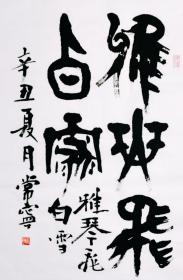 雅琴飛
白雪
雅琴飛
白雪
辛丑夏月常寧